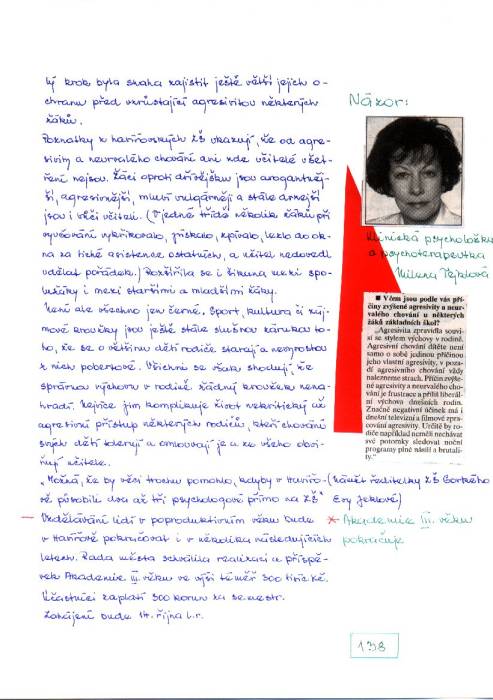 lý krok byla snaha zajistit ještě větší jejich o-
chranu před vzrůstající agresivitou některých
žáků.
Poznatky z havířovských ZŠ ukazují, že od agre-
sivity a neurvalého chování ani zde učitelé ušet-
řeni nejsou. Žáci oproti dřívějšku jsou arogantněj-
ší, agresivnější, mluví vulgárněji a stále drzejší
jsou i vůči učiteli. (V jedné třídě několik žáků při
vyučování vykřikovalo, pískalo, zpívalo, lezlo do ok-
na za tiché asistence ostatních, a učitel nedovedl
udělat pořádek). Rozšířila se i šikana mezi spo-
lužáky i mezi staršími a mladšími žáky.
Není ale všechno jen černé. Sport, kultura či záj-
mové kroužky jsou ještě stále slušnou zárukou to-
ho, že se o většinu dětí rodiče starají a nevyrostou
z nich pobertové. Všichni se však shodují, že
správnou výchovu v rodině žádný kroužek nena-
hradí. Nejvíce jim komplikuje život nekritický až
agresivní přístup některých rodičů, kteří chování
svých dětí tolerují a omlouvají je a ze všeho obvi-
ňují učitele.
„Možná, že by věci trochu pomohlo, kdyby v Havířo-
vě působili dva až tři psychologové přímo na ZŠ"
(námět ředitelky ZŠ Gorkého
Evy Jeklové)
— Vzdělávání lidí v poproduktivním věku bude
v Havířově pokračovat i v několika následujících
letech. Rada města schválila realizaci a příspě-
vek Akademie III. věku ve výši téměř 300 tisíc Kč.
Účastníci zaplatí 300 korun za semestr.
Zahájení bude 14. října t.r.
Názor:
Klinická psycholožka
a psychoterapeutka
Milena Tejklová
■ V čem jsou podle vás pří-
činy zvýšené agresivity a neur-
valého chování u některých
žáků základních škol?
"Agresivita zpravidla souvi-
sí se stylem výchovy v rodině.
Agresivní chování dítěte není
samo o sobě jedinou příčinou
jeho vlastní agresivity, v poza-
dí agresivního chování vždy
nalezneme strach. Příčin zvýše-
né agresivity a neurvalého cho-
vání je frustrace a příliš liberál-
ní výchova dnešních rodin.
Značně negativní účinek má i
dnešní televizní a filmové zpra-
cování agresivity. Určitě by ro-
diče například neměli nechávat
své potomky sledovat noční
programy plné násilí a brutali-
ty."
* Akademie III. věku
pokračuje
138